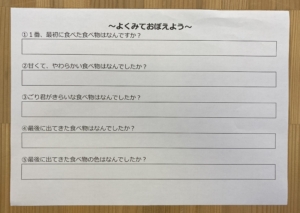 ～よくみておぼえよう～
①１番、最初に食べた食べ物はなんですか？
②甘くて、やわらかい食べ物はなんでしたか？
③ごり君がきらいな食べ物はなんでしたか？
④最後に出てきた食べ物はなんでしたか？
⑤最後に出てきた食べ物の色はなんでしたか？